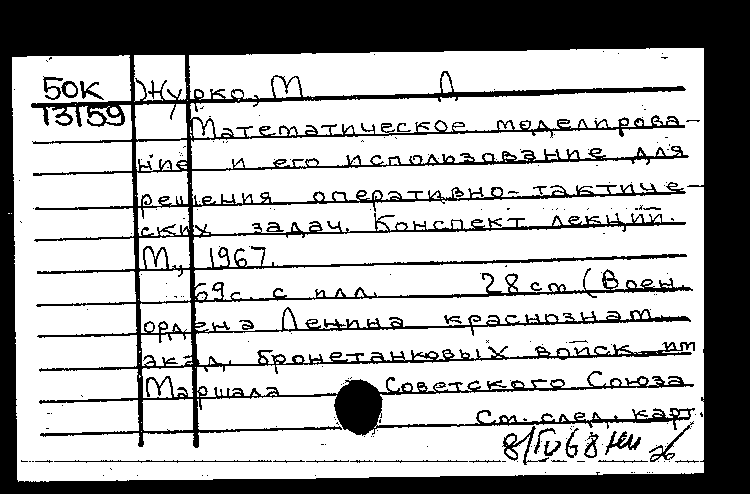 50К Журко, М Д
13159
Математическое моделирова-
ние и его использование для
решения оперативно-тактиче-
ских задач. Конспект лекций.
М., 1967.
69с. с илл. 28 cm (Воен.
ордена Ленина краснознам.
акад. бронетанковых войск им
Маршала Советского Союза
См. след. карт.
8/IV 68